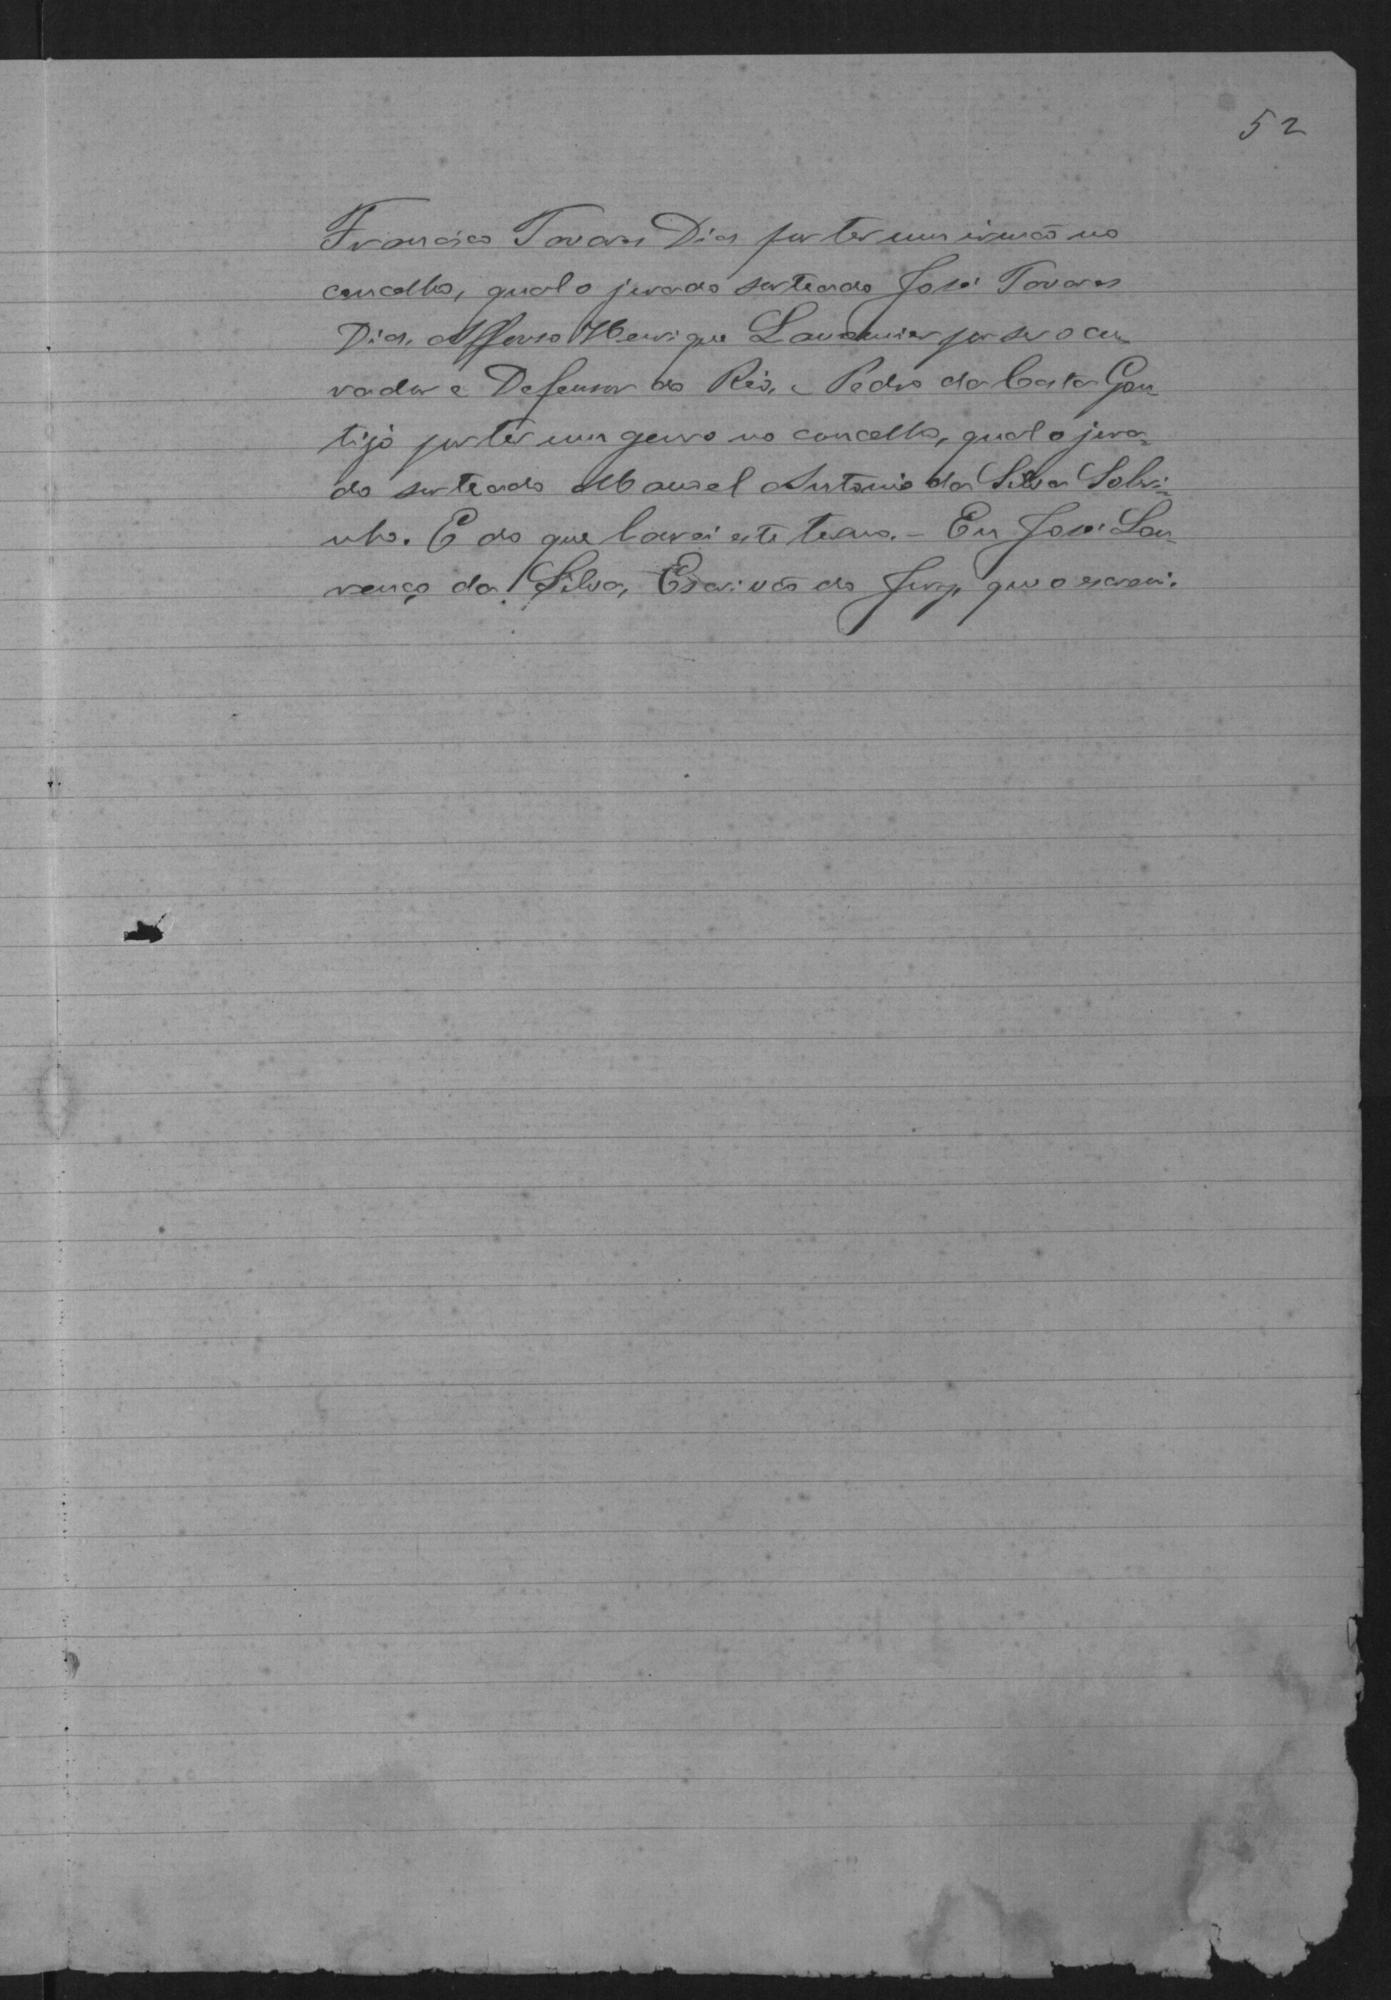 52
Francisco Tavares Dias por ter um irmão no
concelho, qual o jurado sorteado José Tavares
Dias, Affonso Henrique por ser o cu-
rador e Defensor do Réo, e Pedro da Costa Gon-
tijo por ter um genro no concelho, qual o jura-
do sorteado Manoel Antonio da Silva Sobri-
nho. E do que lavrei este termo. - Eu José Lou-
renço da Silva, Escrivão do Jury, que o escrevi.